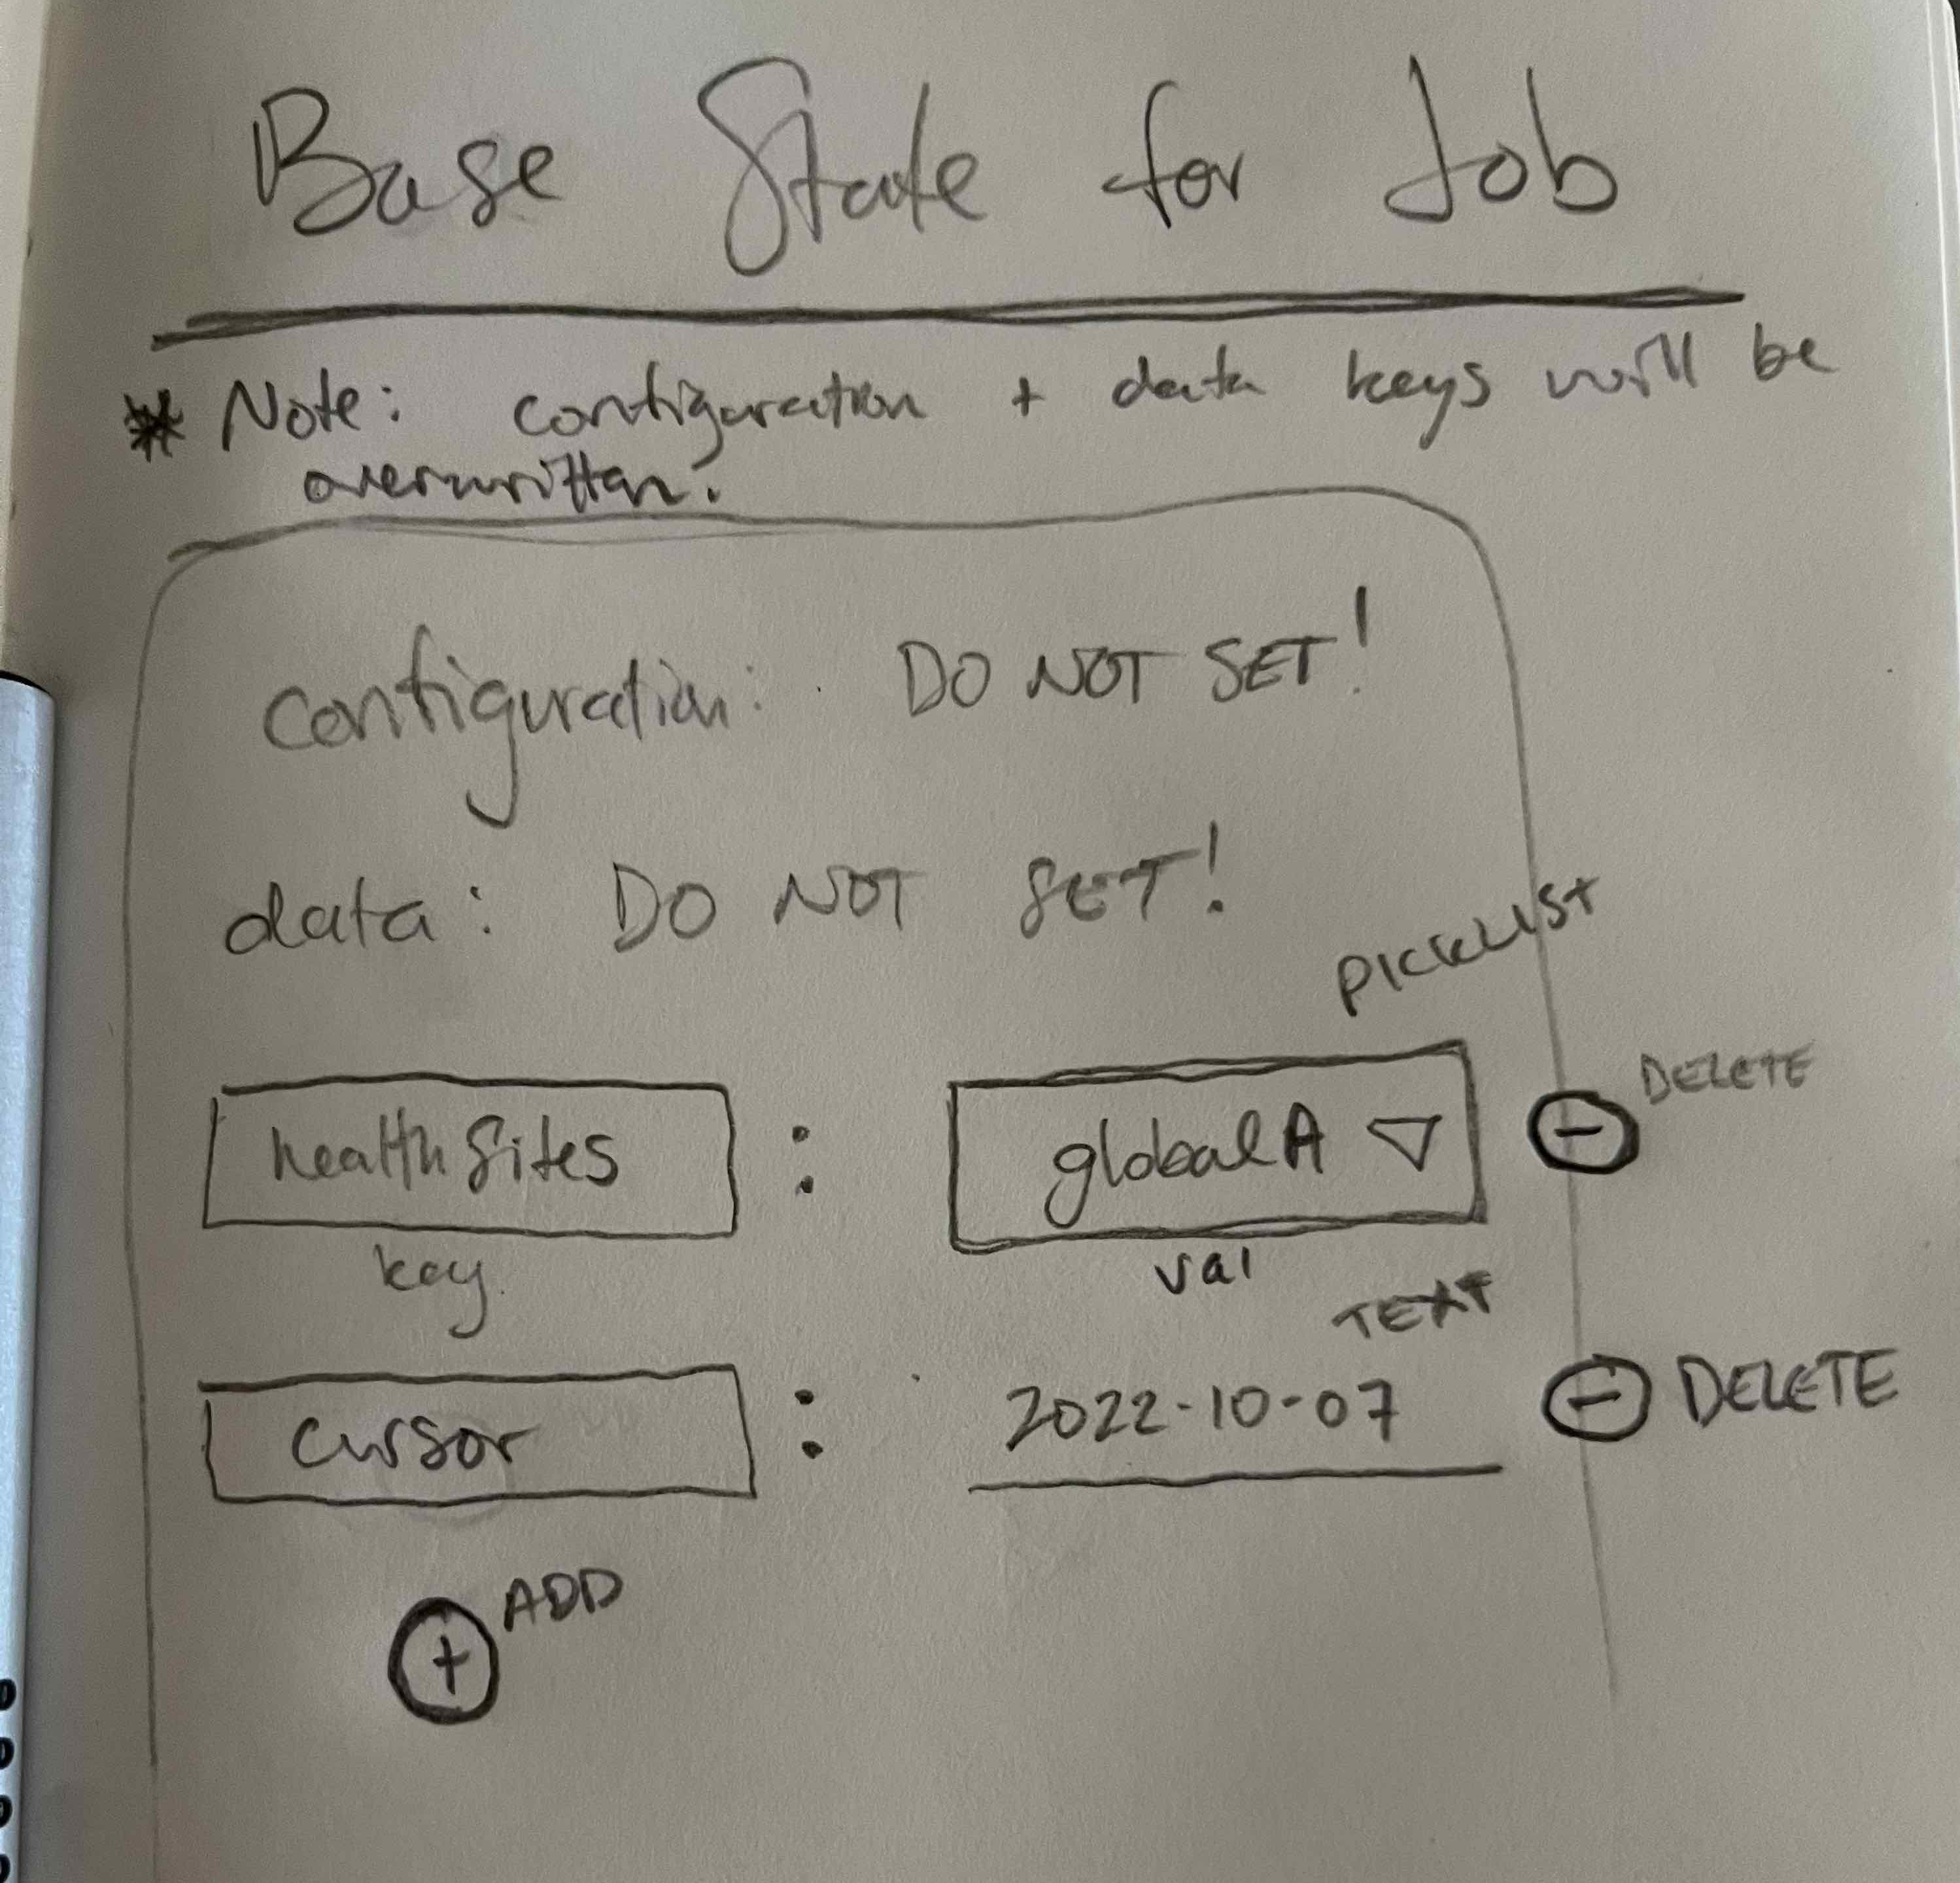 Base State for Job
* Note: configuration + data keys will be
overwritten.
configuration: DO NOT SET!
data: DO NOT SET!
PICKLIST
healthSites : globalA ▽ - DELETE
key val
TEXT
cursor : 2022-10-07 - DELETE
+ ADD